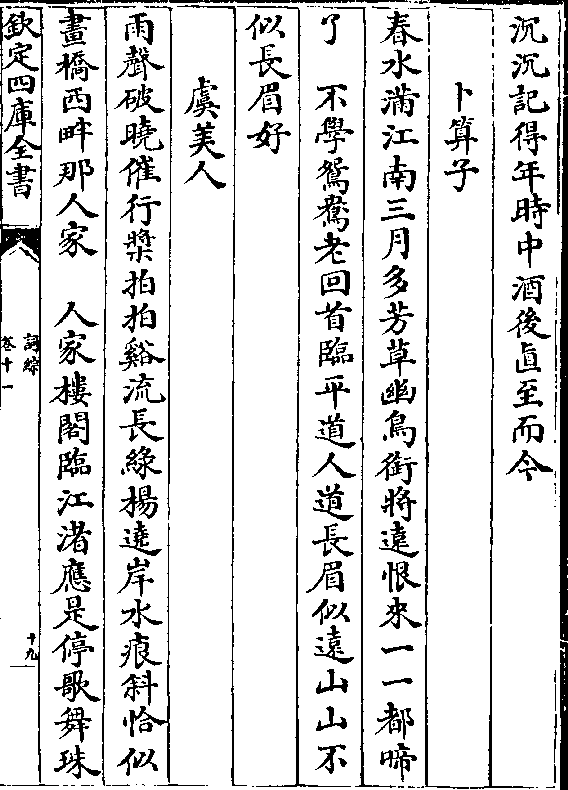 沉沉記得年時中酒後直至而今
卜算子
春水滿江南三月多芳草幽鳥銜將遠恨來一一都啼
了　不學鴛鴦老回首臨平道人道長眉似遠山山不
似長眉好
虞美人
雨聲破曉催行槳拍拍谿流長綠楊遶岸水痕斜恰似
畫橋西畔那人家　人家樓閣臨江渚應是停歌舞珠
欽定四庫全書
詞綜
卷十一
十九